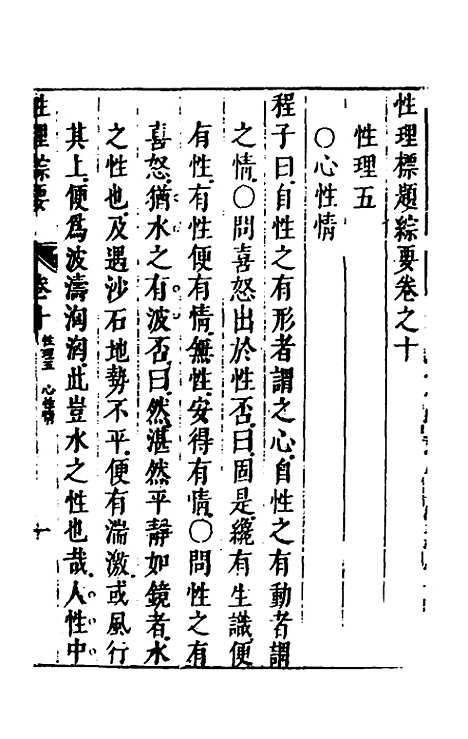 性理標題綜要卷之十
性理五
○心性情
程子曰自性之有形者謂之心自性之有動者謂
之情○問喜怒出於性否曰固是纔有生識便
有性有性便有情無性安得有情○問性之有
喜怒猶水之有波否曰然湛然平靜如鏡者水
之性也及遇沙石地勢不平便有湍激或風行
其上便爲波濤洶洶此豈水之性也哉人性中
性理綜要
卷十
性理五 心性情
一